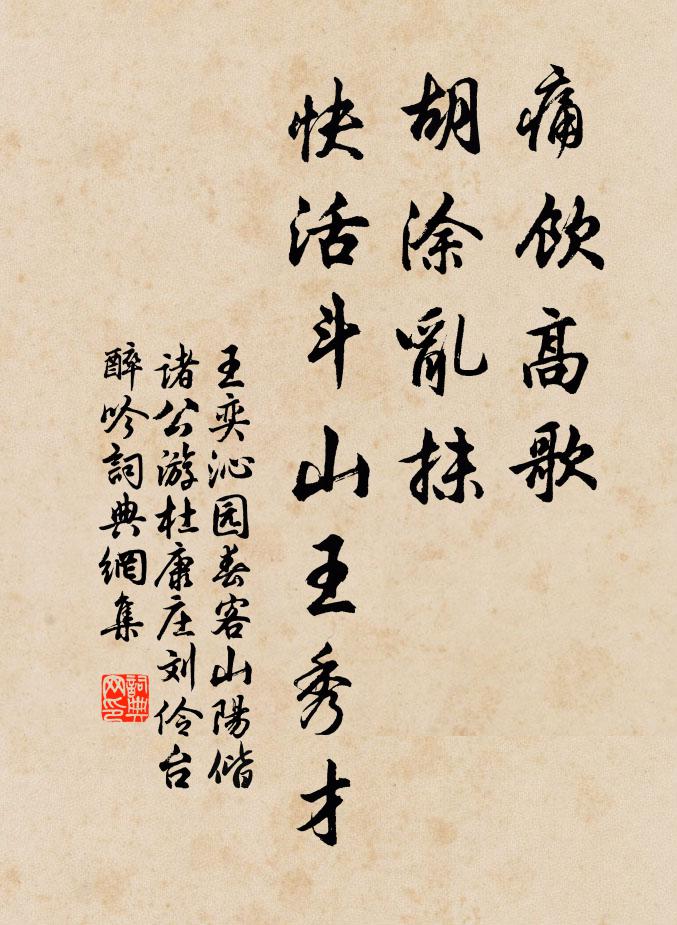 痛饮高歌
胡涂亂抹
快活斗山王秀才
王奕沁园春客山陽偕
诸公游杜康庄刘伶台
醉吟詞典網集
詞典网印